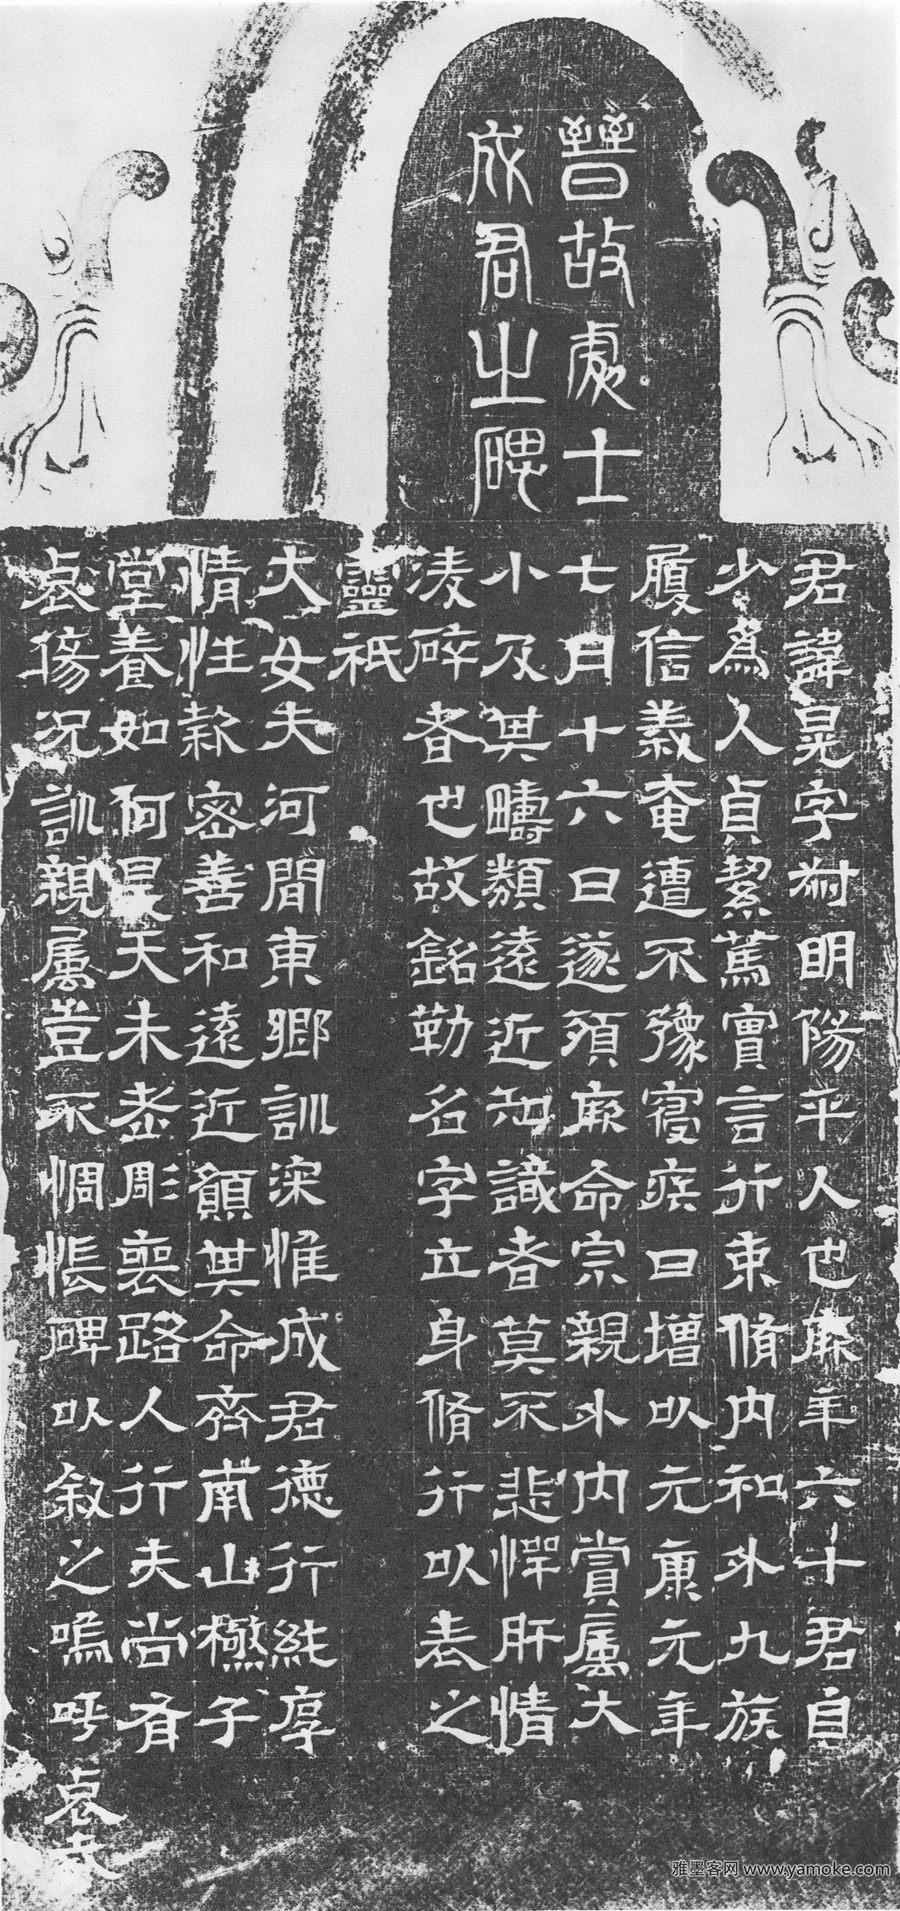 晉故處士
成君之碑
君諱晃字叔明陽平人也年六十君自
少爲人貞絜篤實言行束脩内和外九族
履信義奄遭不豫寑疾日增以元康元年
七月十六日遂殞厥命宗親外内賞属大
小及其疇類遠近知識者莫不悲惮肝情
凌碎者也故銘勒名字立身脩行以表之
靈祇
大女夫河間東鄉訓深惟成君德行純厚
情性款密善和遠近願其命齊南山檄子
堂養如何昊天未老彫喪路人行夫尚有
哀傷况訓親属豈不惆悵碑以敘之嗚呼哀哉
雅墨客网 www.yamoke.com